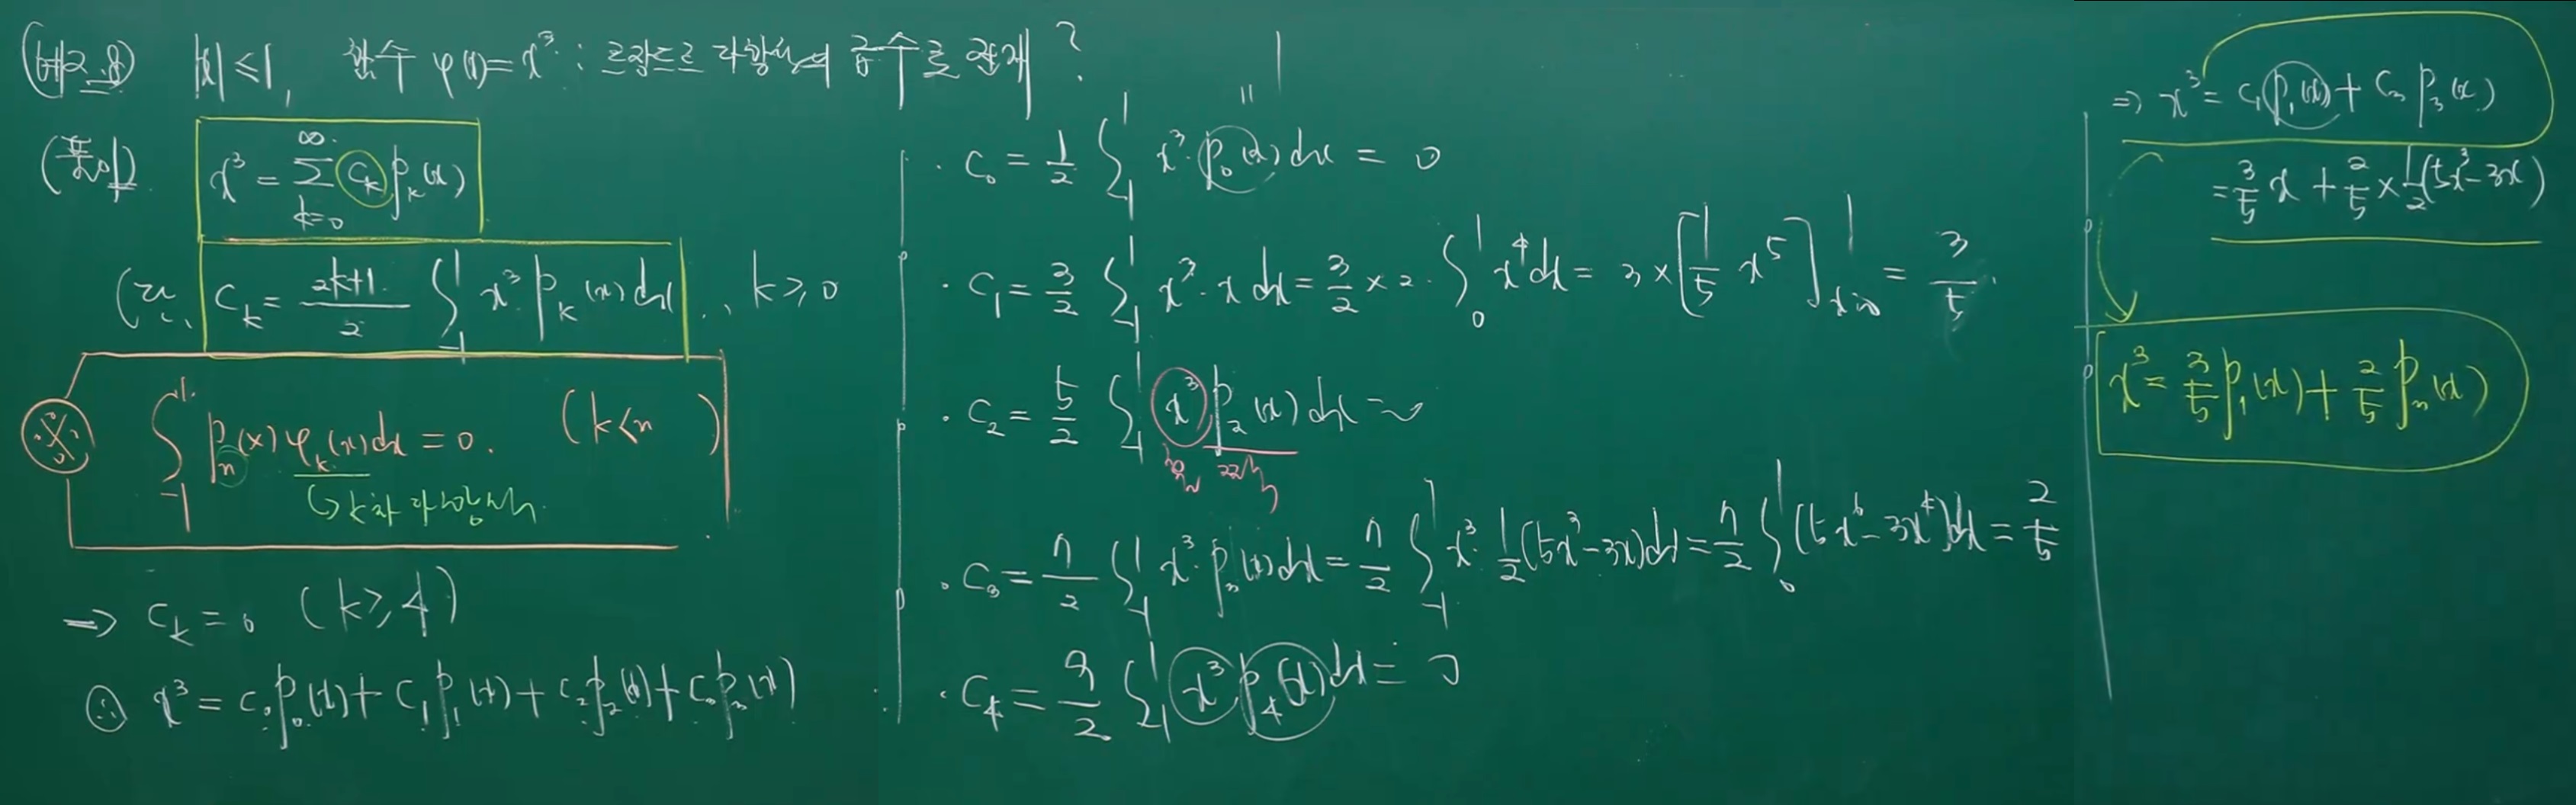 (예2.8) |x| ≤ 1, 함수 φ(x) = x³ : 르장드르 다항식의 급수로 전개?
(풀이) x³ = Σ_{k=0}^{∞} c_k P_k(x)
c_k = (2k+1)/2 ∫_{-1}^{1} x³ P_k(x) dx, k ≥ 0
※ ∫_{-1}^{1} P_n(x) φ_k(x) dx = 0. (k < n)
↳ k차 다항식
⇒ c_k = 0 (k ≥ 4)
∴ x³ = c₀P₀(x) + c₁P₁(x) + c₂P₂(x) + c₃P₃(x)
1
=
· c₀ = 1/2 ∫_{-1}^{1} x³ · P₀(x) dx = 0
· c₁ = 3/2 ∫_{-1}^{1} x³ · x dx = 3/2 × 2 · ∫_{0}^{1} x⁴ dx = 3 × [1/5 x⁵]_{x=0}^{1} = 3/5.
· c₂ = 5/2 ∫_{-1}^{1} x³ P₂(x) dx = 0
· c₃ = 7/2 ∫_{-1}^{1} x³ · P₃(x) dx = 7/2 ∫_{-1}^{1} x³ · 1/2 (5x³ - 3x) dx = 7/2 ∫_{0}^{1} (5x⁶ - 3x⁴) dx = 2/5
· c₄ = 9/2 ∫_{-1}^{1} x³ P₄(x) dx = 0
⇒ x³ = c₁P₁(x) + c₃P₃(x)
= 3/5 x + 2/5 × 1/2 (5x³ - 3x)
x³ = 3/5 P₁(x) + 2/5 P₃(x)